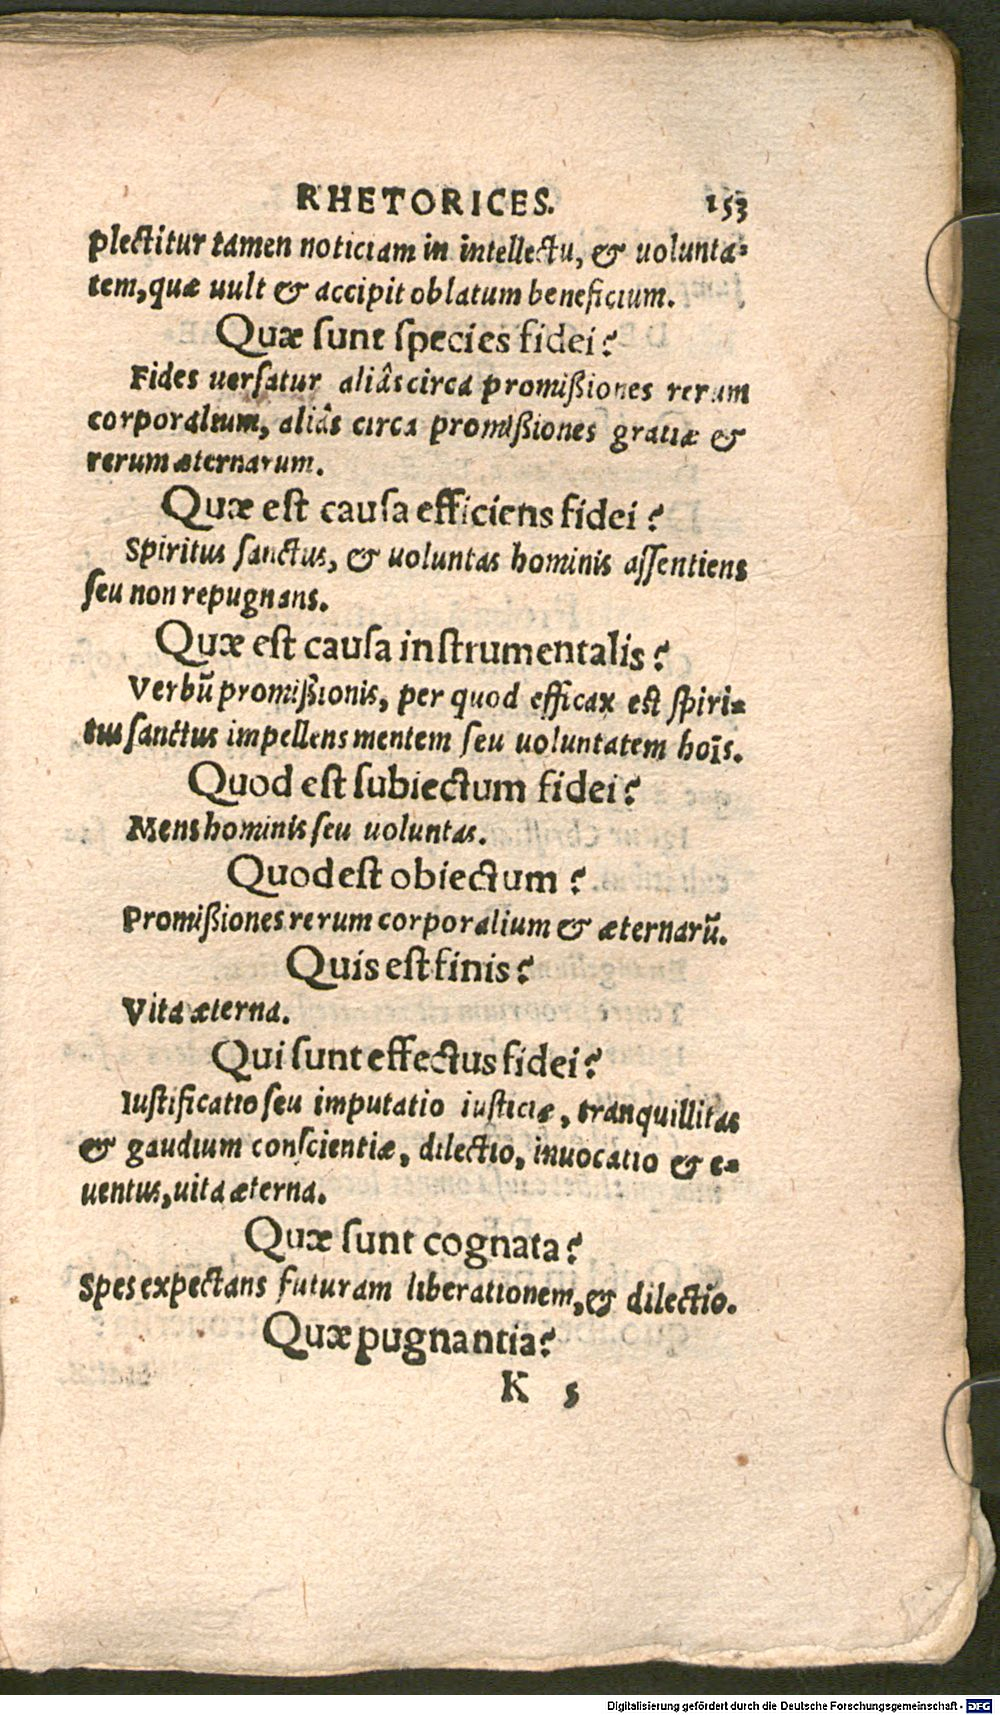 RHETORICES. 153
plectitur tamen noticiam in intellectu, & uolunta-
tem, quæ uult & accipit oblatum beneficium.
Quæ ſunt ſpecies fidei?
Fides uerſatur aliâs circa promißiones rerum
corporalium, aliâs circa promißiones gratiæ &
rerum æternarum.
Quæ eſt cauſa efficiens fidei?
Spiritus ſanctus, & uoluntas hominis aſſentiens
ſeu non repugnans.
Quæ eſt cauſa inſtrumentalis?
Verbū promißionis, per quod efficax eſt ſpiri-
tus ſanctus impellens mentem ſeu uoluntatem hoīs.
Quod eſt ſubiectum fidei?
Mens hominis ſeu uoluntas.
Quod eſt obiectum?
Promißiones rerum corporalium & æternarū.
Quis eſt finis?
Vita æterna.
Qui ſunt effectus fidei?
Iuſtificatio ſeu imputatio iuſticiæ, tranquillitas
& gaudium conſcientiæ, dilectio, inuocatio & e-
uentus, uita æterna.
Quæ ſunt cognata?
Spes expectans futuram liberationem, & dilectio.
Quæ pugnantia?
K 5
Digitalisierung gefördert durch die Deutsche Forschungsgemeinschaft - DFG